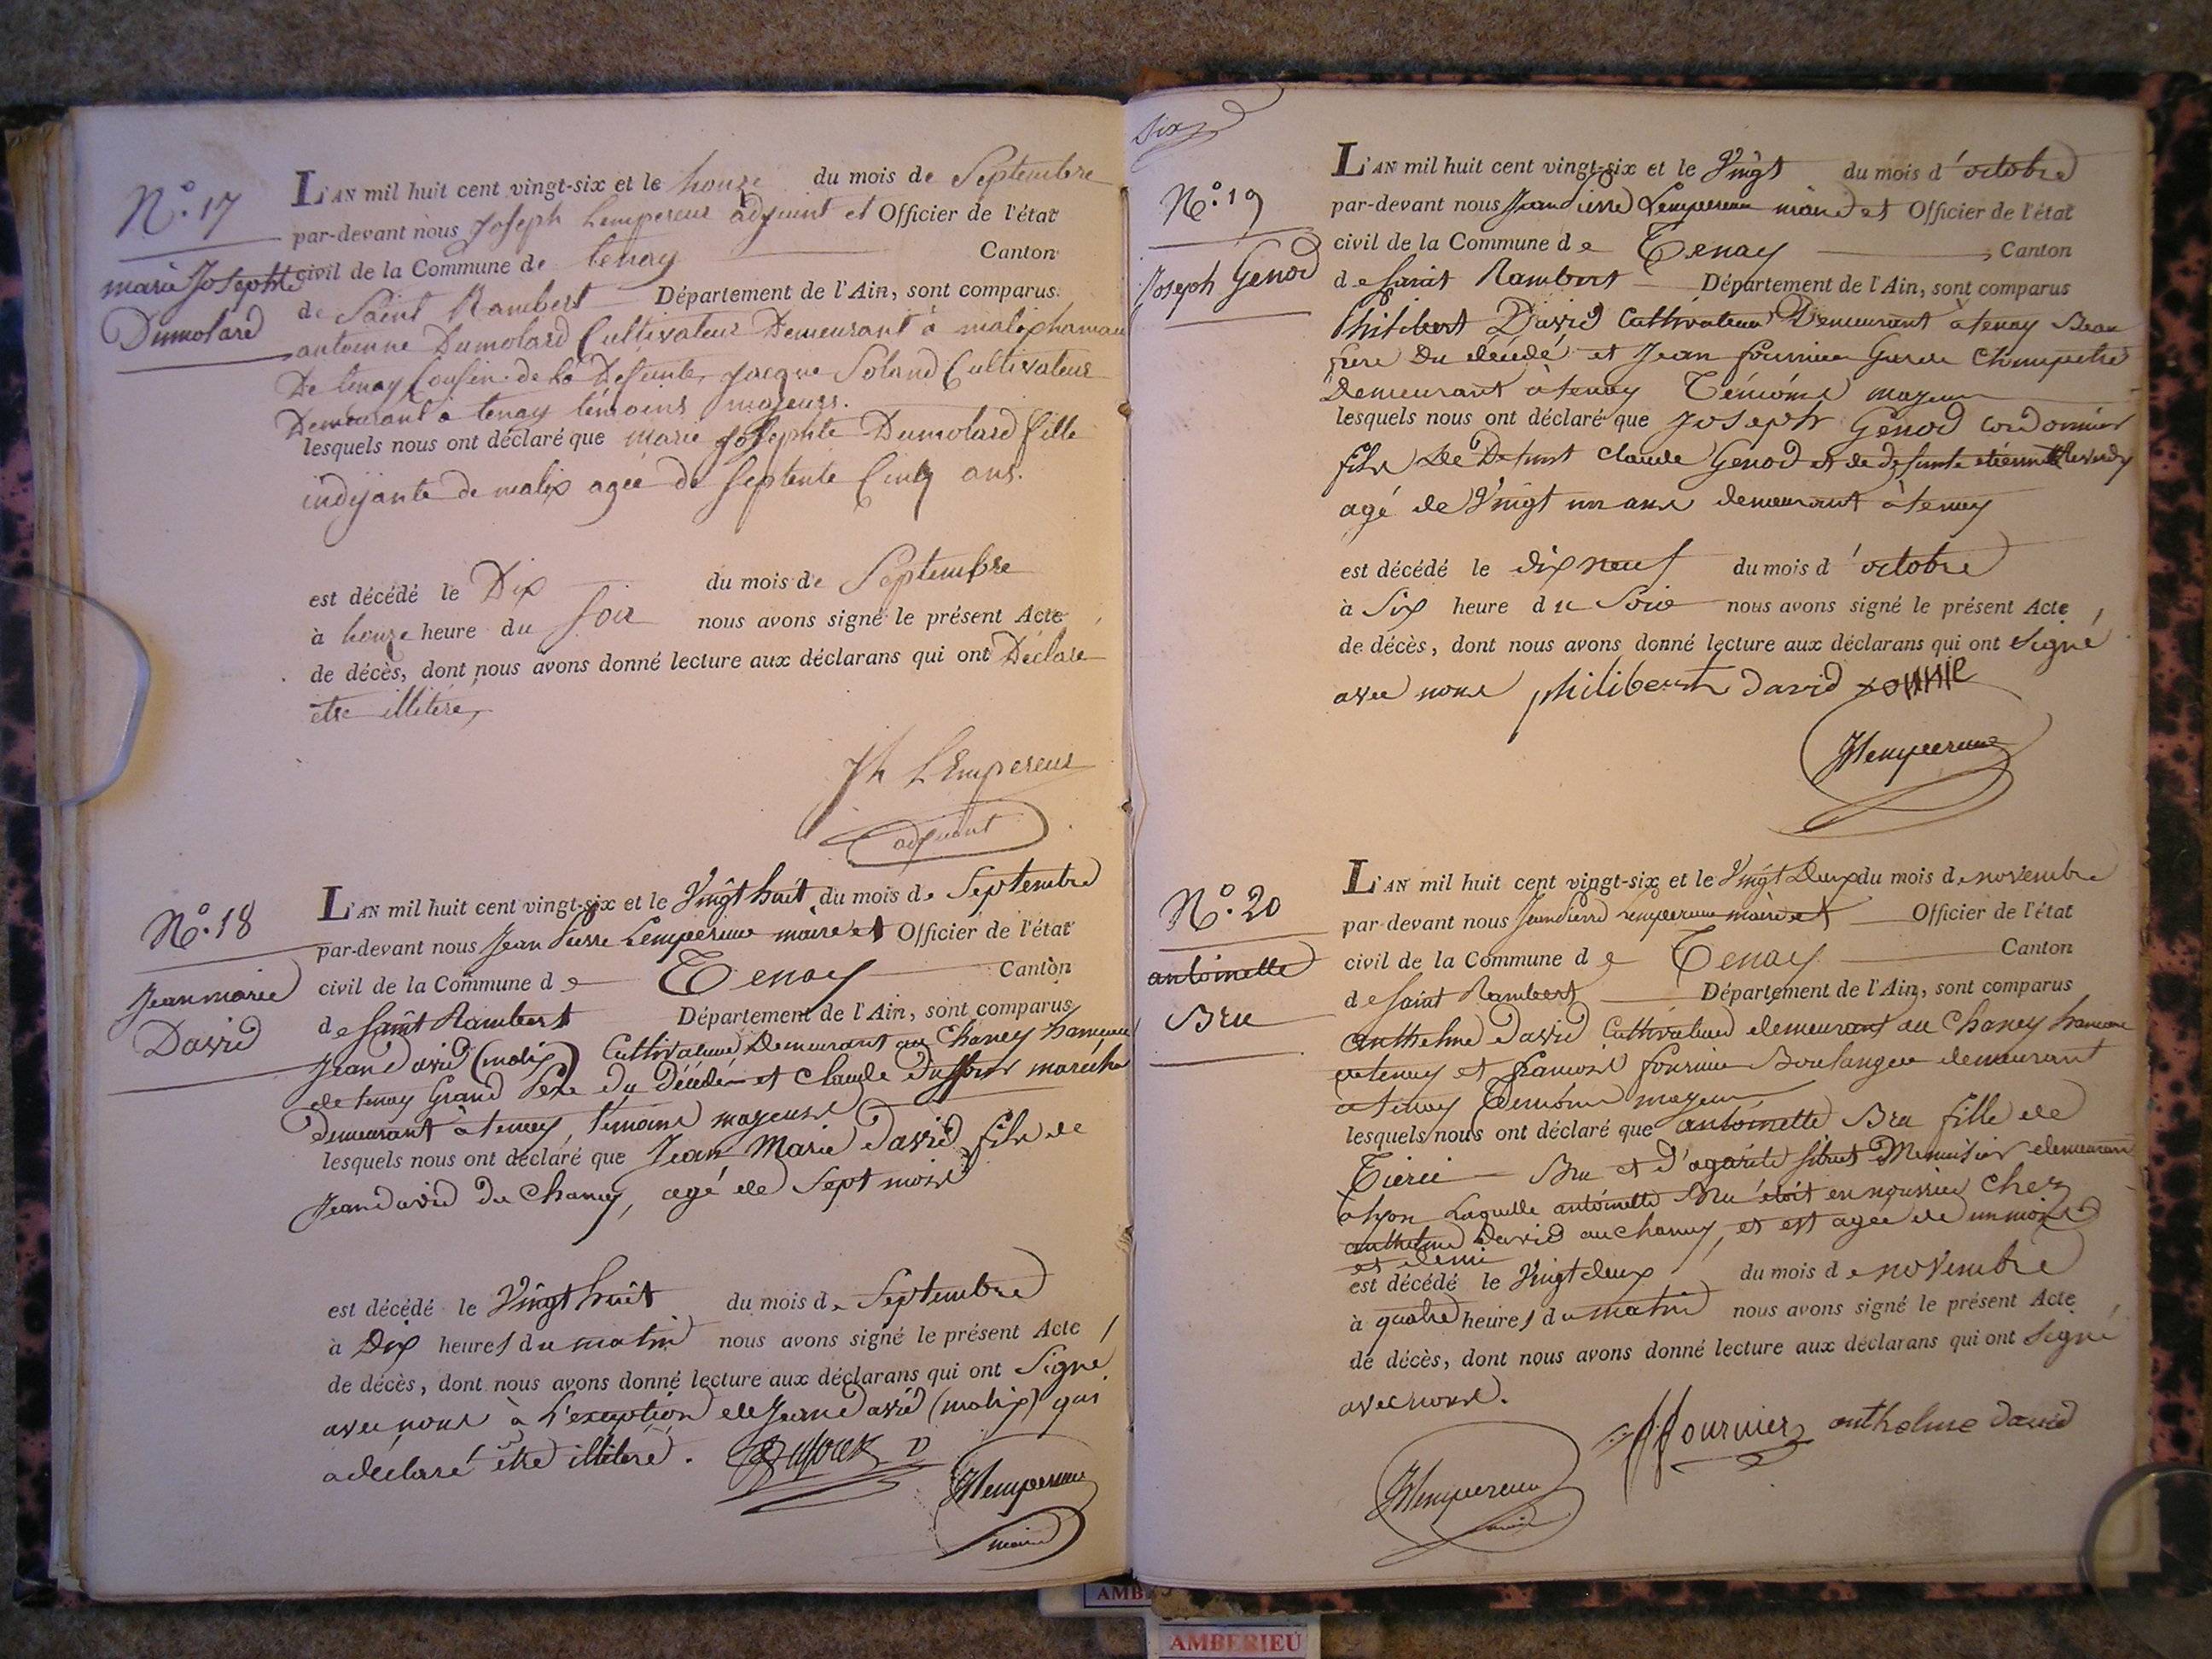 N.° 17
marie Josephte
Dumolard
L'AN mil huit cent vingt-six et le honze du mois de Septembre
par-devant nous Joseph Lempereur adjoint et Officier de l'état
civil de la Commune de tenay Canton
de Saint Rambert Département de l'Ain, sont comparus
antoinne Dumolard Cultivateur Demeurant à malix hamau
De tenay Cousin de la Defunte, Jacque Soland Cultivateur
Demeurant à tenay témoins majeurs.
lesquels nous ont déclaré que marie Josephte Dumolard fille
indijante de malix agée de septente Cinq ans.
est décédé le Dix du mois de Septembre
à honze heure du soir nous avons signé le présent Acte
de décès, dont nous avons donné lecture aux déclarans qui ont Déclare
etre illitéré,
Jh LEmpereur
adjoint
N.° 18
Jean marie
David
L'AN mil huit cent vingt-six et le Vingt huit du mois de Septembre
par-devant nous Jean Pierre Lempereur maire et Officier de l'état
civil de la Commune de Tenay Canton
de Saint Rambert Département de l'Ain, sont comparus
Jean David (malix) Cultivateur Demeurant au Chaney hameau
de tenay Grand Pere du Décédé et Claude Dufour maréchal
Demeurant à tenay, témoins majeurs
lesquels nous ont déclaré que Jean Marie David fils de
Jean David du Chaney, agé de Sept mois
est décédé le Vingt huit du mois de Septembre
à Dix heures du matin nous avons signé le présent Acte
de décès, dont nous avons donné lecture aux déclarans qui ont Signé
avec nous à L'exception de Jean David (malix) qui
a déclaré être illitéré. Dufour
JPLempereur
maire
six
N.° 19
Joseph Genod
L'AN mil huit cent vingt-six et le Vingt du mois d'octobre
par-devant nous Jean Pierre Lempereur maire et Officier de l'état
civil de la Commune de Tenay Canton
de Saint Rambert Département de l'Ain, sont comparus
Philibert David Cultivateur Demeurant à tenay Beau
frere Du décédé et Jean fournier Garde Champetre
Demeurant à tenay Témoins majeurs
lesquels nous ont déclaré que Joseph Genod Cordonnier
fils De Defunt Claude Genod et de defunte etiennette
agé de Vingt un ans demeurant à tenay
est décédé le dix neuf du mois d'octobre
à Six heure du Soir nous avons signé le présent Acte
de décès, dont nous avons donné lecture aux déclarans qui ont Signé
avec nous philibert David
JPLempereur
N.° 20
antoinette
Bru
L'AN mil huit cent vingt-six et le Vingt Deux du mois de novembre
par-devant nous Jean Pierre Lempereur maire et Officier de l'état
civil de la Commune de Tenay Canton
de Saint Rambert Département de l'Ain, sont comparus
anthelme David Cultivateur demeurant au Chaney hameau
de tenay et francois fournier Boulanger demeurant
à tenay Témoins majeurs
lesquels nous ont déclaré que antoinette Bru fille de
Bru et d'agarite Menuisier demeurant
à lyon Laquelle antoinette Bru étoit en nourrice chez
anthelme David au Chaney, et est agée de un mois
et demi
est décédé le Vingt deux du mois de novembre
à quatre heures du matin nous avons signé le présent Acte
de décès, dont nous avons donné lecture aux déclarans qui ont Signé
avec nous.
ffournier anthelme David
JPLempereur
maire
AMBERIEU